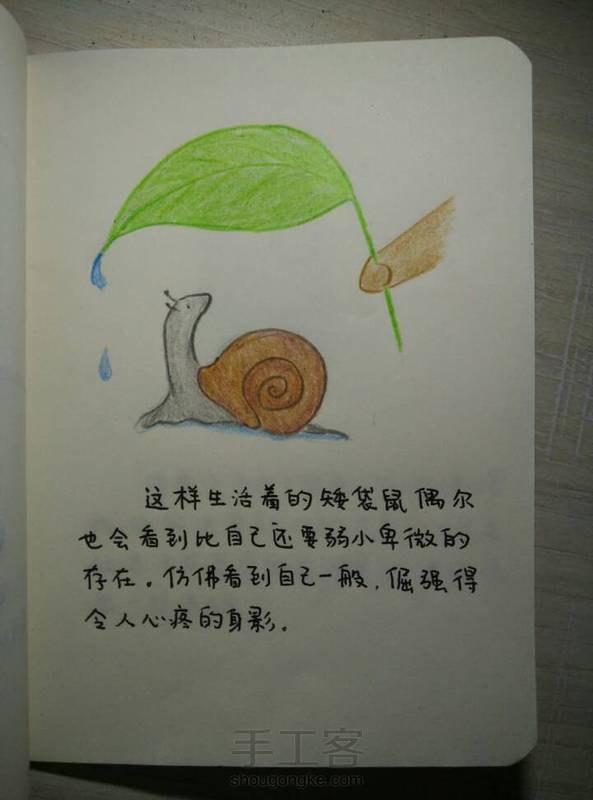 这样生活着的矮袋鼠偶尔
也会看到比自己还要弱小卑微的
存在。仿佛看到自己一般，倔强得
令人心疼的身影。
手工客
shougongke.com